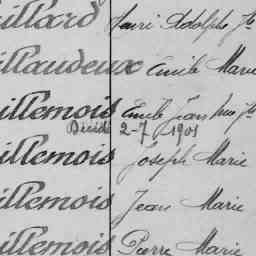 illard Henri Adolphe Jh
illaudeux Emile Marie
illemois Emile Jean Jh
Décédé 2-7 1901
illemois Joseph Marie
illemois Jean Marie
illemois Pierre Marie